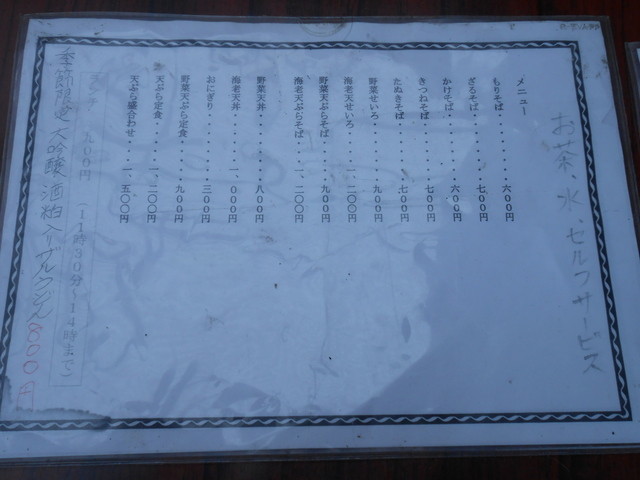 お茶、水、セルフサービス
メニュー
もりそば・・・・・・・六〇〇円
ざるそば・・・・・・・七〇〇円
かけそば・・・・・・・六〇〇円
きつねそば・・・・・・七〇〇円
たぬきそば・・・・・・七〇〇円
野菜せいろ・・・・・・九〇〇円
海老天せいろ・・・一、二〇〇円
野菜天ぷらそば・・・・九〇〇円
海老天ぷらそば・・一、二〇〇円
野菜天丼・・・・・・・八〇〇円
海老天丼・・・・・一、〇〇〇円
おにぎり・・・・・・・三〇〇円
野菜天ぷら定食・・・・九〇〇円
天ぷら定食・・・・一、二〇〇円
天ぷら盛合わせ・・一、五〇〇円
ランチ 九〇〇円 (11時30分~14時まで)
季節限定 大吟醸 酒粕入りザルうどん 800円